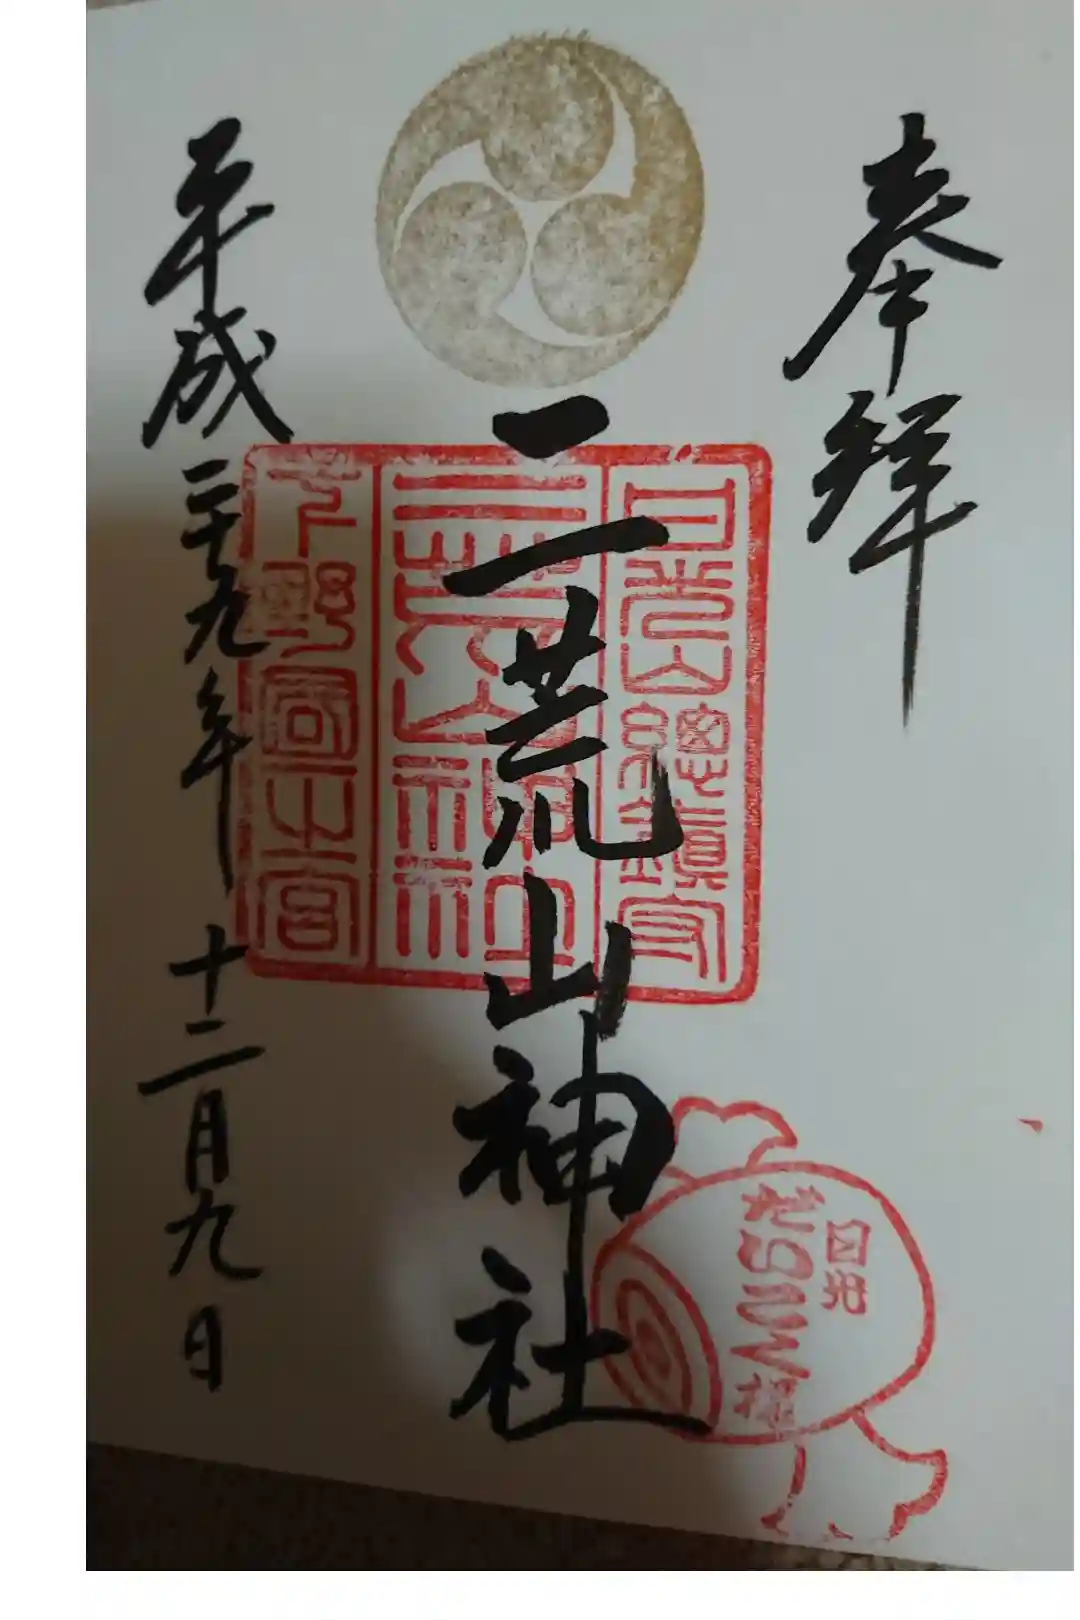 奉拝
日光山總鎮守
二荒山神社
二荒山神社
日光
だいこく様
下野國中宮
平成二十九年十二月九日